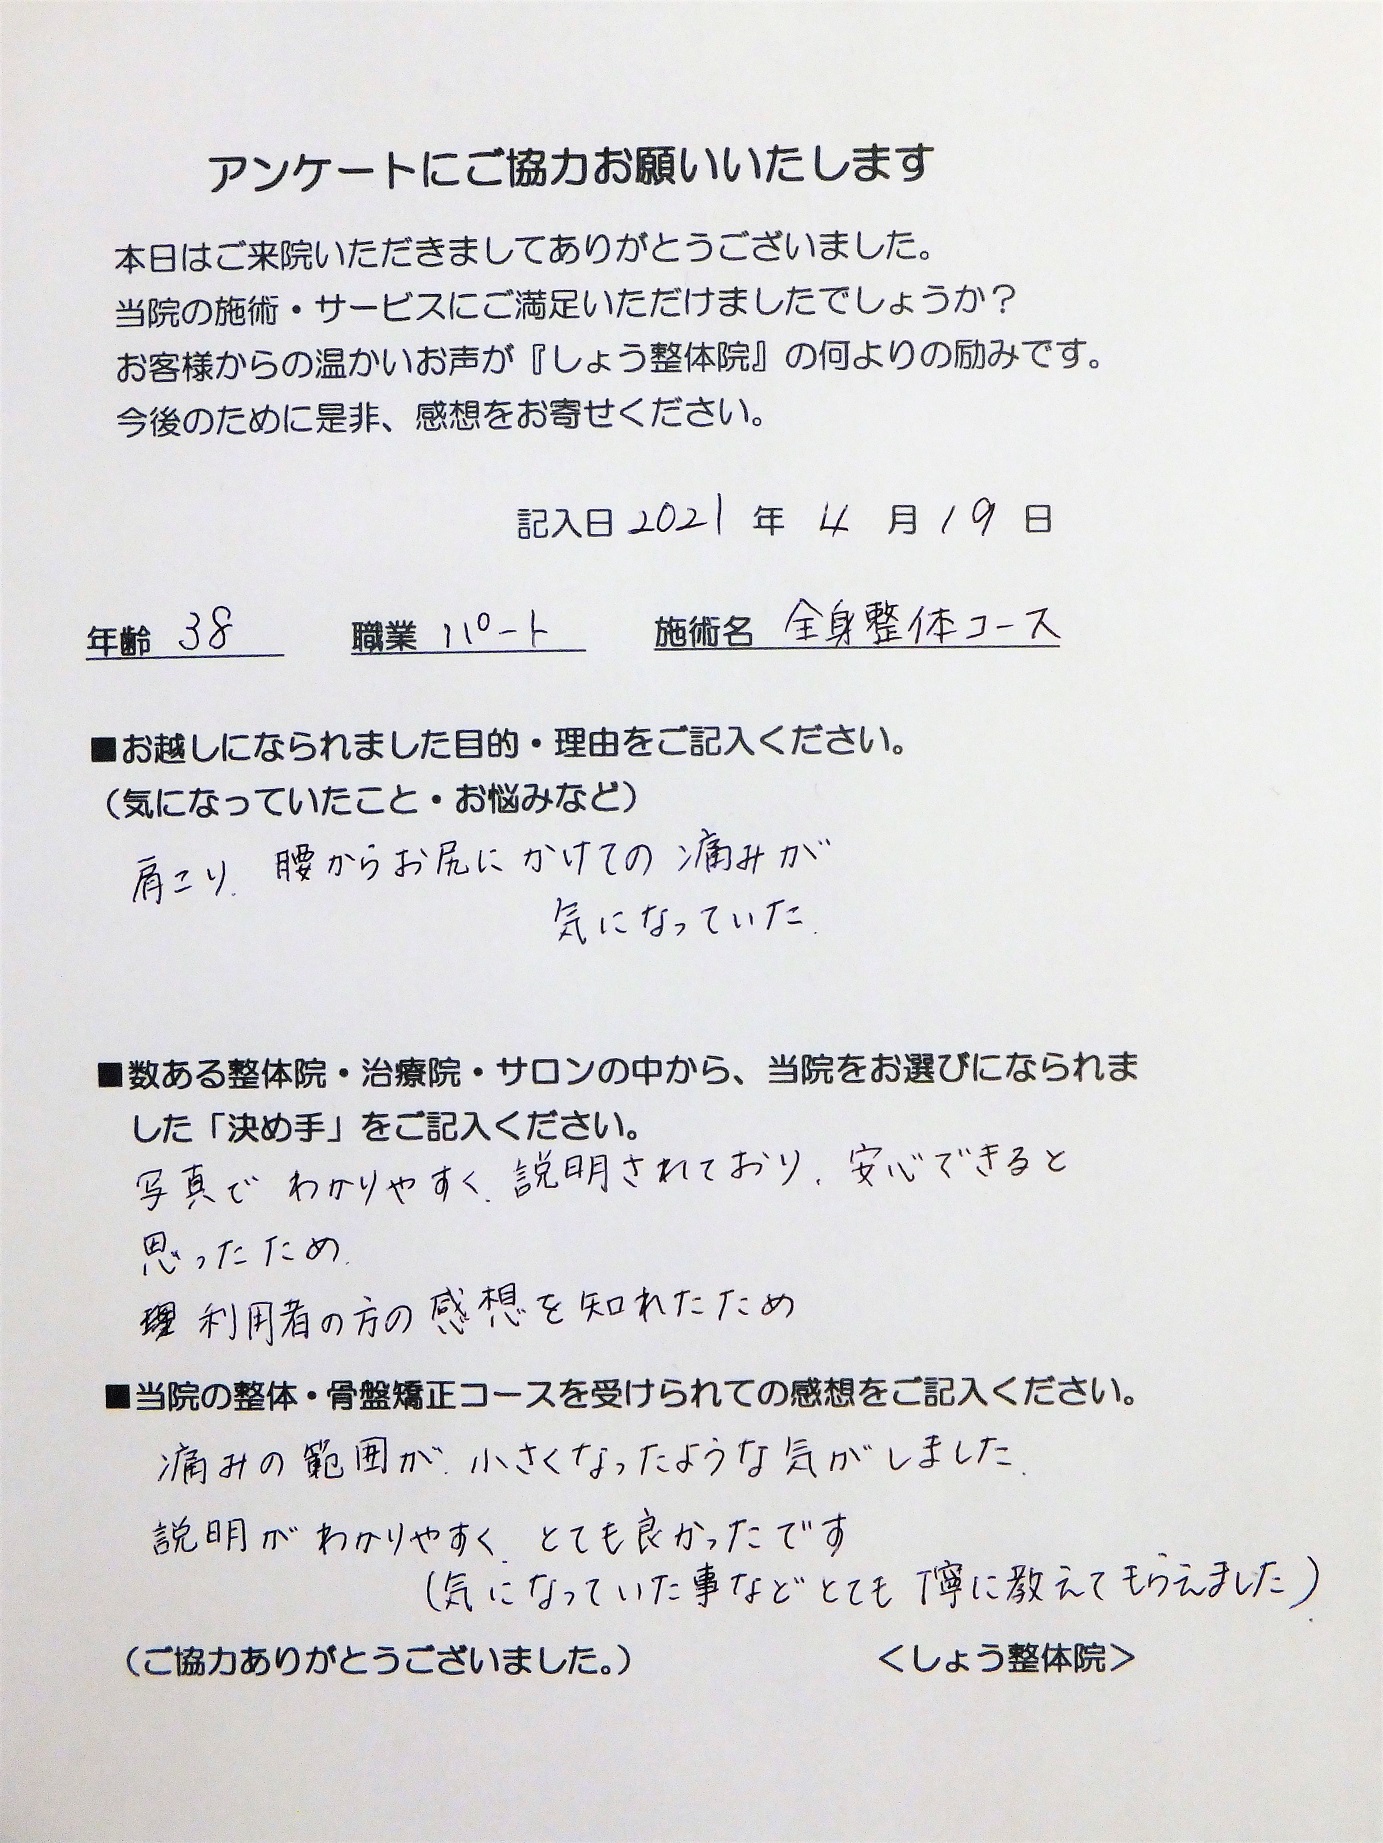 アンケートにご協力お願いいたします
本日はご来院いただきましてありがとうございました。
当院の施術・サービスにご満足いただけましたでしょうか？
お客様からの温かいお声が『しょう整体院』の何よりの励みです。
今後のために是非、感想をお寄せください。
記入日 2021 年 4 月 19 日
年齢 38 職業 パート 施術名 全身整体コース
■お越しになられました目的・理由をご記入ください。
（気になっていたこと・お悩みなど）
肩こり、腰からお尻にかけての痛みが
気になっていた。
■数ある整体院・治療院・サロンの中から、当院をお選びになられま
した「決め手」をご記入ください。
写真でわかりやすく、説明されており、安心できると
思ったため。
利用者の方の感想を知れたため
■当院の整体・骨盤矯正コースを受けられての感想をご記入ください。
痛みの範囲が、小さくなったような気がしました。
説明がわかりやすく、とても良かったです
（気になっていた事などとても丁寧に教えてもらえました）
（ご協力ありがとうございました。） ＜しょう整体院＞